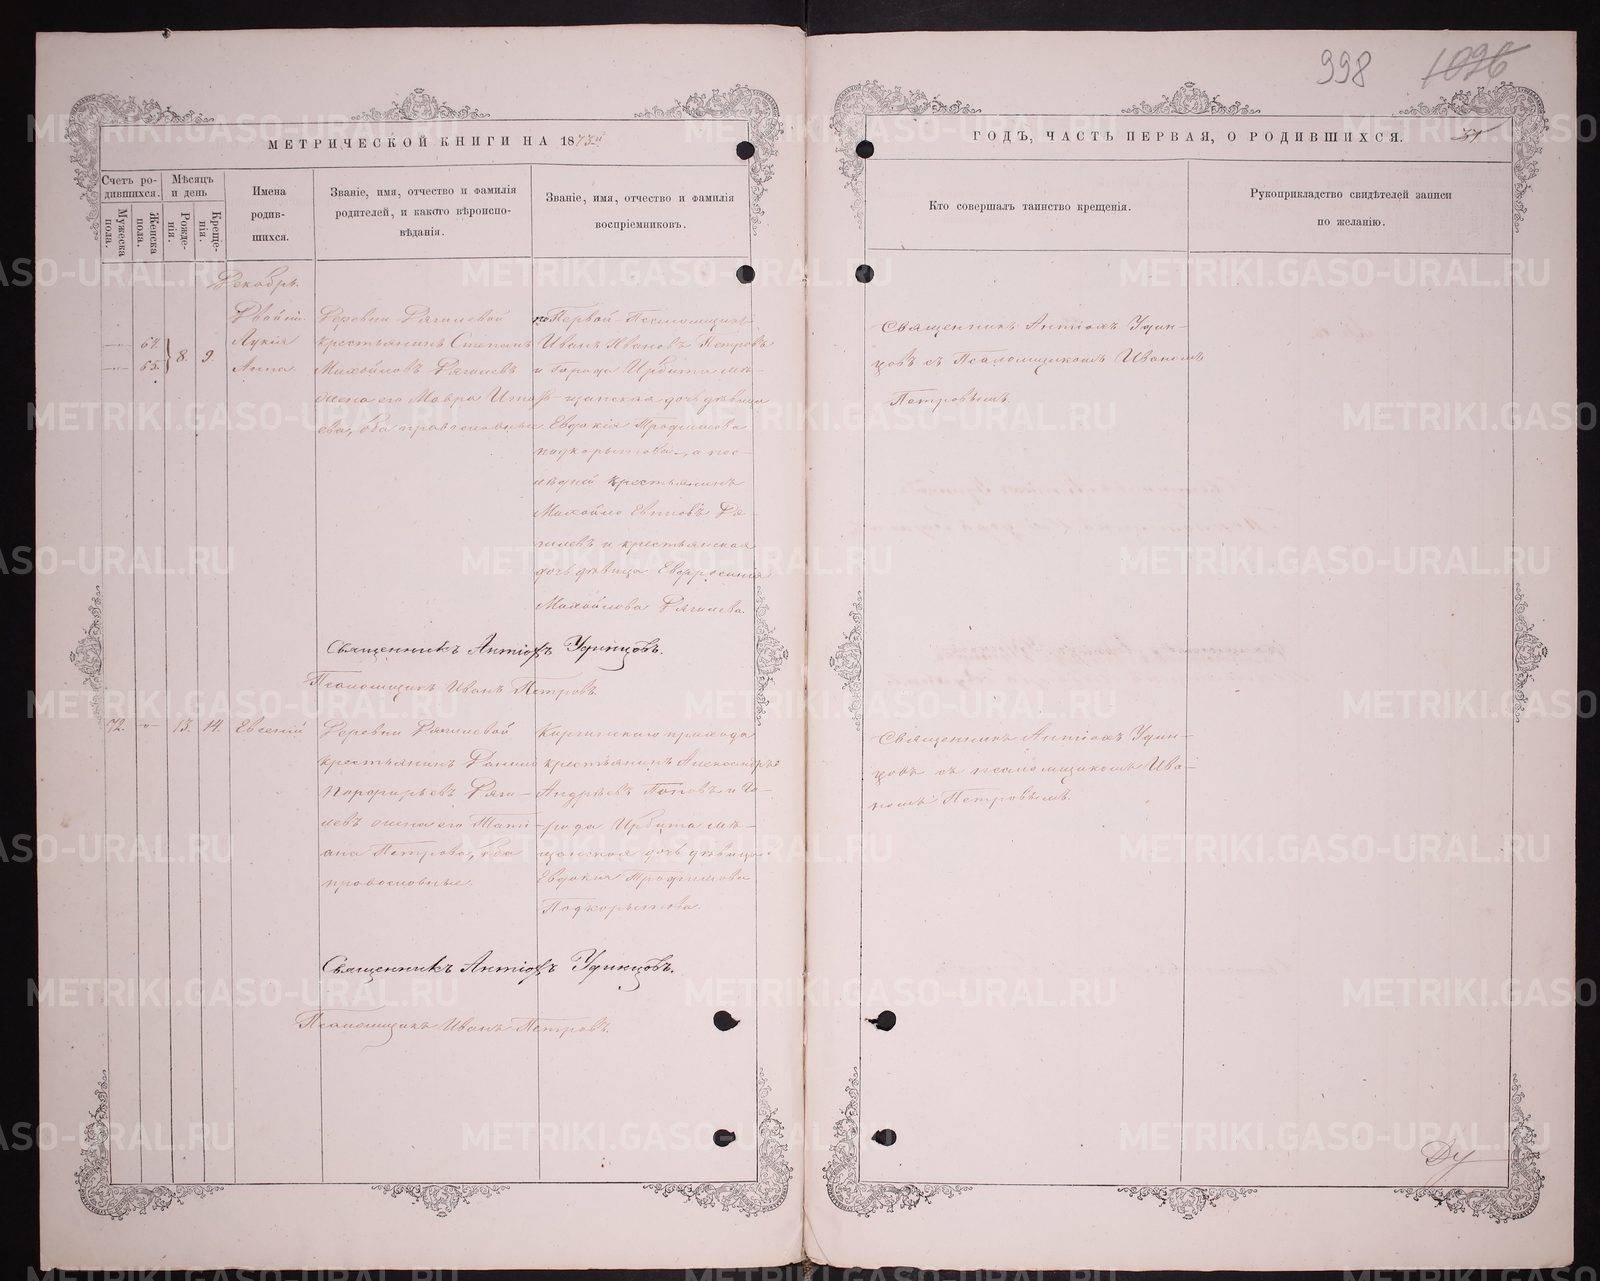 998 1096
МЕТРИЧЕСКОЙ КНИГИ НА 1873й
ГОДЪ, ЧАСТЬ ПЕРВАЯ, О РОДИВШИХСЯ.
Счетъ родившихся.
Мужеска пола.
Женска пола.
Мѣсяцъ и день
Рожденія.
Крещенія.
Имена родившихся.
Званіе, имя, отчество и фамилія
родителей, и какого вѣроиспо-
вѣданія.
Званіе, имя, отчество и фамилія
воспріемниковъ.
Кто совершалъ таинство крещенія.
Рукоприкладство свидѣтелей записи
по желанію.
Декабрь.
64.
65.
8. 9.
Лукія
Анна.
крестьянинъ Степанъ
Михайловъ
жена его Мавра
ева, оба православные
Первой Псаломщикъ
Иванъ Ивановъ Петровъ
и города Ирбита мѣ-
щанская дочь дѣвица
Евдокія Трофимова
Подкорытова, а пос-
лѣдней крестьянинъ
Михайло
и крестьянская
дочь дѣвица Евфросинія
Михайлова
Священникъ Антіохъ Удин-
цовъ съ Псаломщикомъ Иваномъ
Петровымъ.
Священникъ Антіохъ Удинцовъ.
Псаломщикъ Иванъ Петровъ.
72. 13. 14. Евгеній
Деревни
крестьянинъ
Порфирьевъ
жена его Тати-
ана Петрова, оба
православные.
Киргинскаго прихода
крестьянинъ Александръ
Андрѣевъ Поповъ и го-
рода Ирбита мѣ-
щанская дочь дѣвица
Евдокія Трофимова
Подкорытова.
Священникъ Антіохъ Удин-
цовъ съ псаломщикомъ Ива-
номъ Петровымъ.
Священникъ Антіохъ Удинцовъ.
Псаломщикъ Иванъ Петровъ.
METRIKI.GASO-URAL.RU